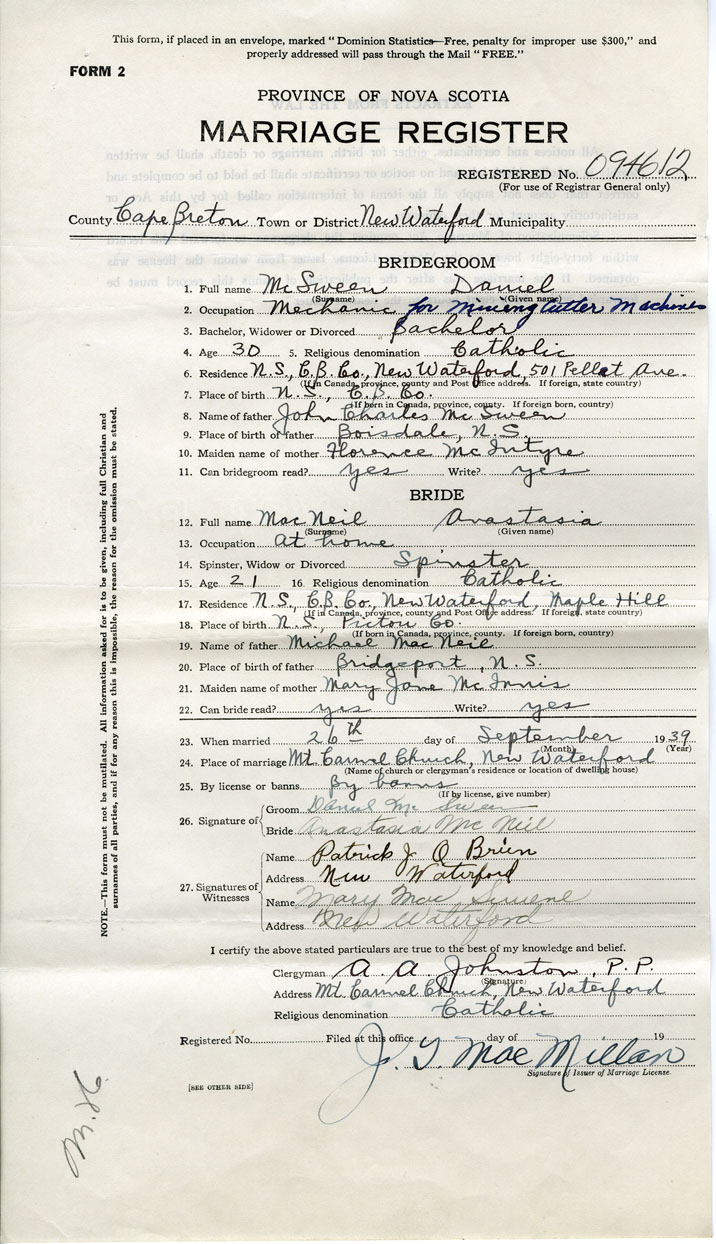 This form, if placed in an envelope, marked "Dominion Statistics—Free, penalty for improper use $300," and
properly addressed will pass through the Mail "FREE."
FORM 2
PROVINCE OF NOVA SCOTIA
MARRIAGE REGISTER
REGISTERED No. 094612
(For use of Registrar General only)
County Cape Breton Town or District New Waterford Municipality
BRIDEGROOM
1. Full name McSween Daniel
(Surname) (Given name)
2. Occupation Mechanic for mining cutter machines
3. Bachelor, Widower or Divorced Bachelor
4. Age 30 5. Religious denomination Catholic
6. Residence N.S., C.B. Co., New Waterford, 501 Pellat Ave.
(If in Canada, province, county and Post Office address. If foreign, state country)
7. Place of birth N.S., C.B. Co.
(If born in Canada, province, county. If foreign, country)
8. Name of father John Charles McSween
9. Place of birth of father Boisdale, N.S.
10. Maiden name of mother Florence McIntyre
11. Can bridegroom read? yes Write? yes
BRIDE
12. Full name MacNeil Anastasia
(Surname) (Given name)
13. Occupation At home
14. Spinster, Widow or Divorced Spinster
15. Age 21 16. Religious denomination Catholic
17. Residence N.S., C.B. Co., New Waterford, Maple Hill
(If in Canada, province, county and Post Office address. If foreign, state country)
18. Place of birth N.S., Pictou Co.
(If born in Canada, province, county. If foreign, country)
19. Name of father Michael MacNeil
20. Place of birth of father Bridgeport, N.S.
21. Maiden name of mother Mary Jane McInnis
22. Can bride read? yes Write? yes
23. When married 26th day of September 1939
(Month) (Year)
24. Place of marriage Mt. Carmel Church, New Waterford
(Name of church or clergyman's residence or location of dwelling house)
25. By license or banns By banns
(If by license, give number)
26. Signature of Groom Daniel McSween
Bride Anastasia McNeil
27. Signatures of Witnesses Name Patrick J. O Brien
Address New Waterford
Name Mary Mac
Address New Waterford
I certify the above stated particulars are true to the best of my knowledge and belief.
Clergyman A. A. Johnston, P.P.
(Signature)
Address Mt. Carmel Church, New Waterford
Religious denomination Catholic
Registered No. Filed at this office day of 19
J. G. MacMillan
Signature of Issuer of Marriage License
[SEE OTHER SIDE]
NOTE.—This form must not be mutilated. All information asked for is to be given, including full Christian and
surnames of all parties, and if for any reason this is impossible, the reason for the omission must be stated.